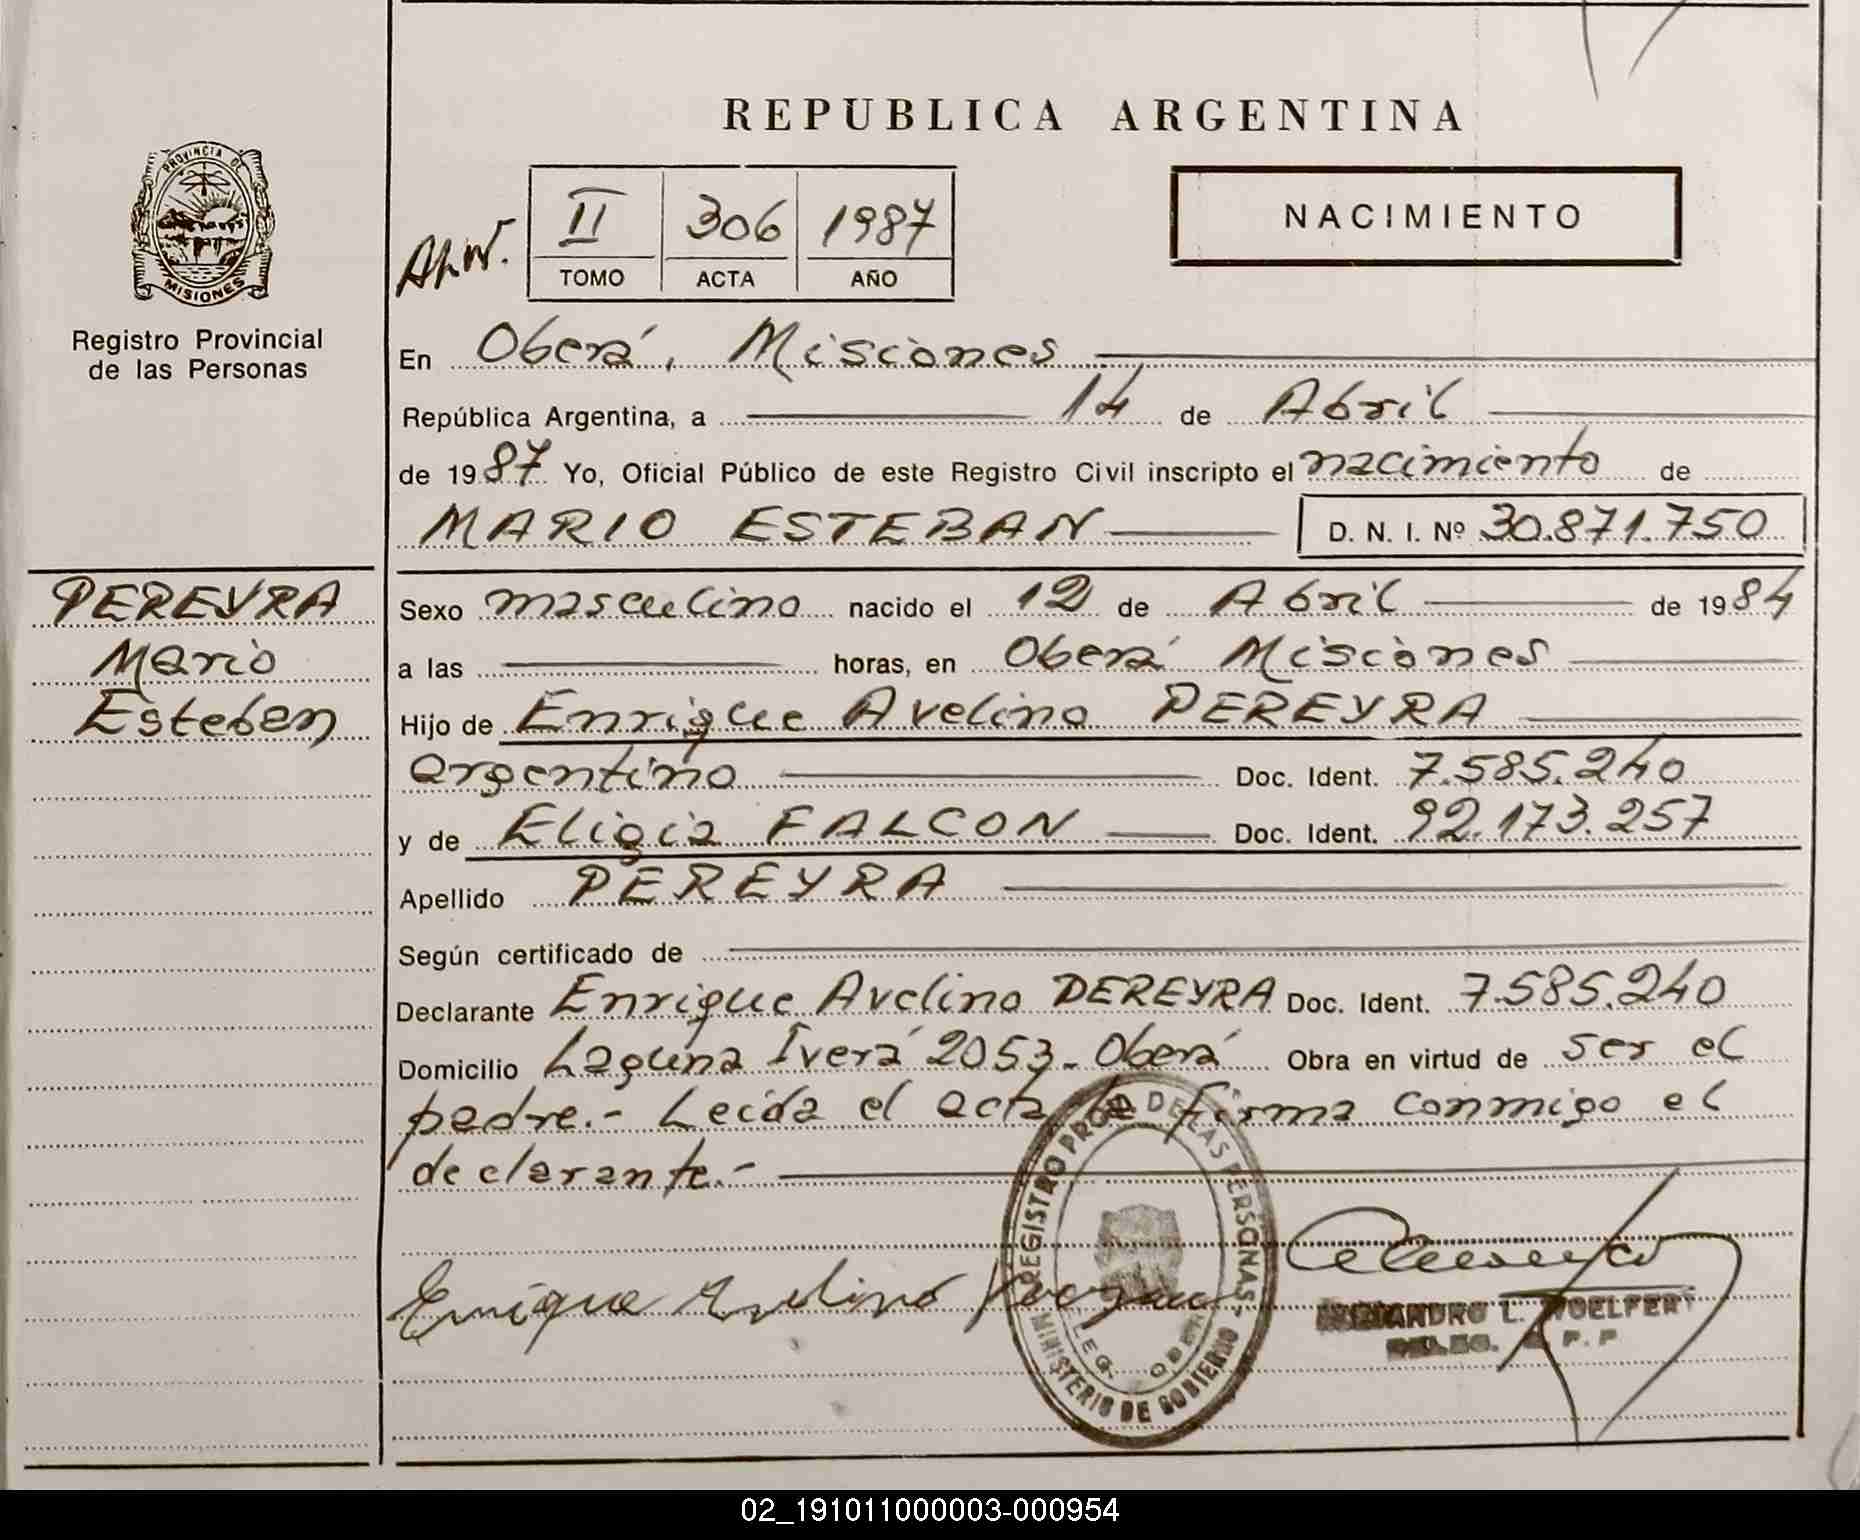 REPUBLICA ARGENTINA
PROVINCIA DE
MISIONES
Registro Provincial
de las Personas
II 306 1987
TOMO ACTA AÑO
NACIMIENTO
En Oberá, Misiones
República Argentina, a 14 de Abril
de 1987 Yo, Oficial Público de este Registro Civil inscripto el nacimiento de
MARIO ESTEBAN D. N. I. Nº 30.871.750
PEREYRA
Mario
Esteban
Sexo masculino nacido el 12 de Abril de 1984
a las horas, en Oberá Misiones
Hijo de Enrique Avelino PEREYRA
argentino Doc. Ident. 7.585.240
y de Eligia FALCON Doc. Ident. 92.173.257
Apellido PEREYRA
Según certificado de
Declarante Enrique Avelino PEREYRA Doc. Ident. 7.585.240
Domicilio Laguna Iverá 2053 - Oberá Obra en virtud de ser el
padre.- Leída el acta la firma conmigo el
declarante.-
Enrique Avelino
REGISTRO PROV. DE LAS PERSONAS -
MINISTERIO DE GOBIERNO
L. WOELFERT
02_191011000003-000954